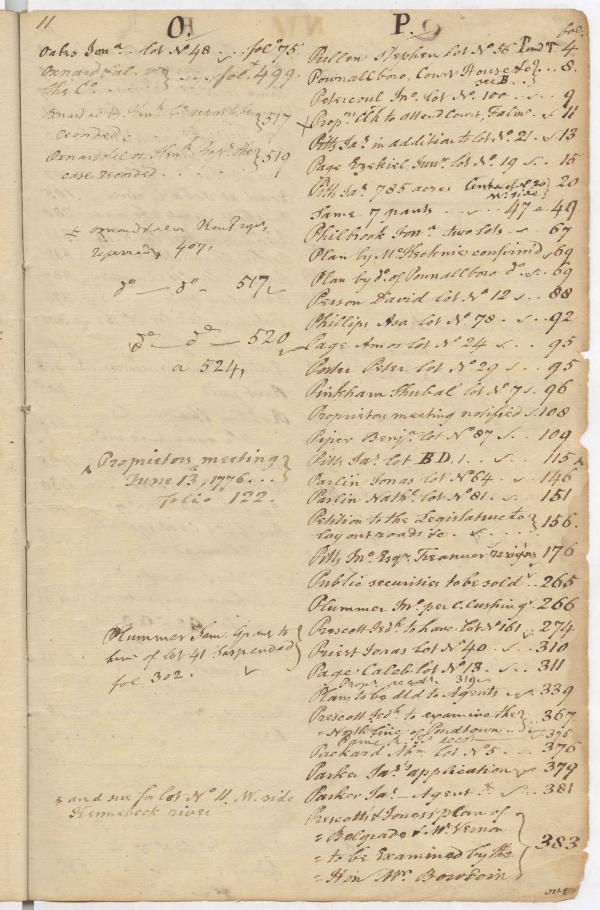 11
O.
Oaks Jonᵃ. lot Nº 48 .. folº 75.
Oxnard &al.
The Cº. .. folº 499.
recorded. } 517
case recorded . . } 519
reserved, 407,
dº — dº - 517,
dº — dº — 520
a 524,
Proprietors meeting
June 13, 1776. . .
folio 122.
Plummer Sam. Grant to
him of lot 41 Suspended
fol 302.
and see for lot Nº 11, W. side
Kennebeck river
P.
fol.
Pullen Stephen Lot Nº 36 P and T 4
Pownallboro, Court House &c see B } .. 8.
Petercoul Jnº. lot Nº 100 . . 9
Propʳˢ Clk to attend Court, Falmº. 11
Pitts Jaˢ. in addition to lot Nº 21. 13
Page Ezekiel Junʳ. lot Nº 19 .. 15
Pitts Jaˢ. 785 acres 20
Same 7 grants . . . 47 a 49
Philbrook Jonᵃ. two lots . . 67
Plan by McKechnie confirmd 69
Plan by dº. of Pownallboro dº. 69
Person David lot Nº 12 . . 88
Phillips Asa lot Nº 78 . . 92
Page Amos lot Nº 24 . . . 95
Porter Peter lot Nº 29 . . 95
Pinkham Shubal lot Nº 7 . 96
Proprietors meeting notified . 108
Piper Benjᵃ. lot Nº 87 . . 109
Pitts Jaˢ. lot B D. 1 . . . 115
Parlin Jonas lot Nº 64 . - 146
Parlin Nathˡ. lot Nº 81. . . 151
Petition to the Legislature to
lay out roads &c . . . } 156.
Pitts Jnº. Esqʳ. Treasurer resigns 176
Public securities to be sold . . 265
Plummer Jnº. per C. Cushing 266
Prescott Jedʰ. to have lot Nº 161 . 274
Priest Jonas lot Nº 40 . . . 310
Page Caleb lot Nº 13 . . . 311
Plans to be dld to Agents . . 339
Prescott Jedʰ. to examine the
North line of Pondtown . . } 367
375
Packard Abᵐ. lot Nº 5 . . . 376
Parker Jaˢ. application 379
Parker Jaˢ. Agent &c . . 381
Prescotts & Jones's plan of
= Belgrade & Mt. Vernon
= to be Examined by the
= Hon Mr. Bowdoin } 383
over